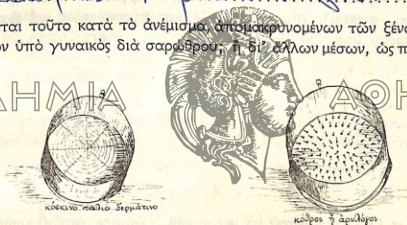 ται τοῦτο κατὰ τὸ ἀνέμισμα, ἀπομακρυνομένων τῶν ξένω
ν ὑπὸ γυναικὸς διὰ σαρώθρου; ἢ δι᾽ ἄλλων μέσων, ὡς π
ΔΗΜΙΑ ΑΘΗ
κόσκινο παλιὸ δερμάτινο
κόθρος ἢ ἀρυλόγος